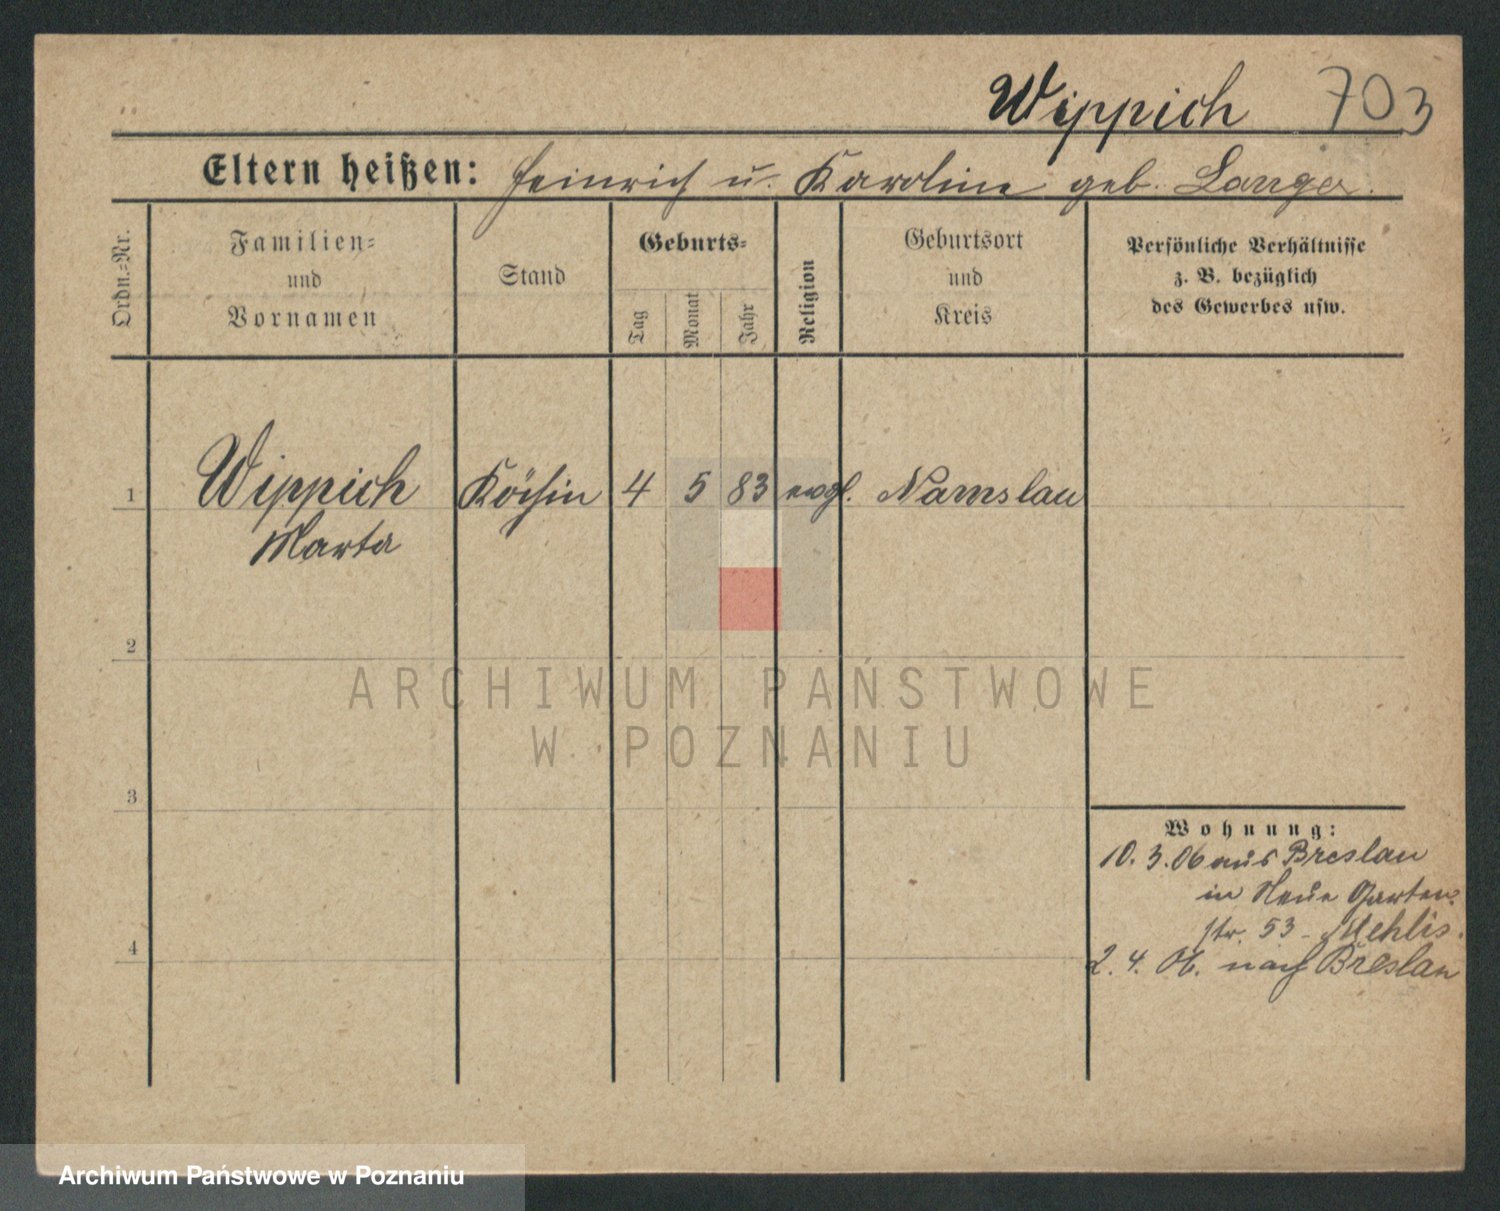 Wippich 703
Eltern heißen: Heinrich u. Karoline geb. Langer.
Ordn.=Nr.
Familien=
und
Vornamen
Stand
Geburts=
Tag
Monat
Jahr
Religion
Geburtsort
und
Kreis
Persönliche Verhältnisse
z. B. bezüglich
des Gewerbes usw.
1 Wippich Köchin 4 5 83 evgl. Namslau
Marta
2
ARCHIWUM PAŃSTWOWE
W POZNANIU
3
Wohnung:
10. 3. 06 aus Breslau
in Neue Garten
str. 53 - Mehlis.
4
2. 4. 06. nach Breslau
Archiwum Państwowe w Poznaniu